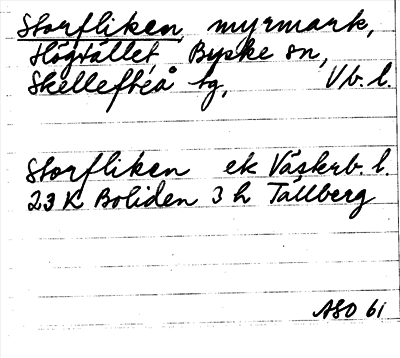 Storfliken, myrmark,
Högfället, Byske sn,
Skellefteå tg, Vb. l.
Storfliken ek Västerb. l.
23 K Boliden 3 h Tällberg
ASO 61